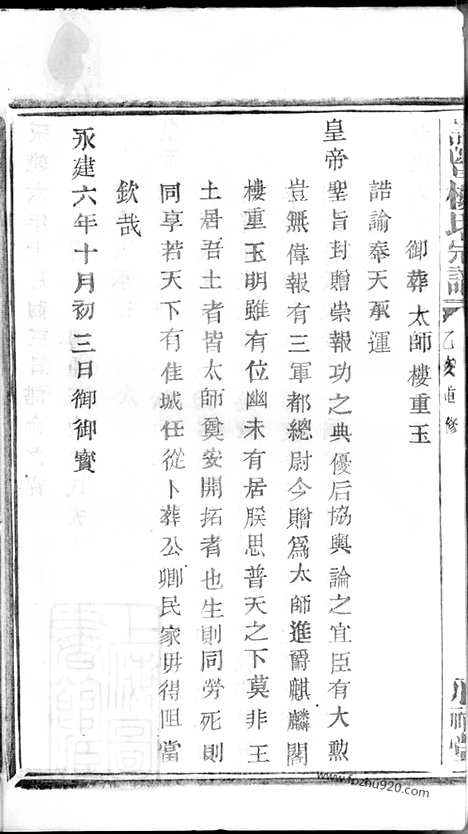 御葬太師樓重玉
誥諭奉天承運
皇帝聖旨封贈崇報功之典優后協輿論之宜臣有大勲
豈無偉報有三軍都總尉今贈爲太師進爵麒麟閣
樓重玉明雖有位幽未有居朕思普天之下莫非王
土居吾土者皆太師奠安開拓者也生則同勞死則
同享若天下有佳城任從卜葬公卿民家毋得阻當
欽哉
永建六年十月初三日御御寳
樓氏宗譜
乙亥重修
www.fozhu920.com